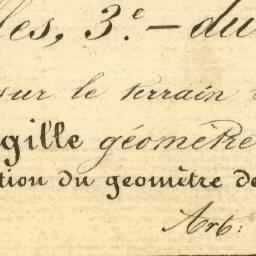 les, 3.e – du
sur le terrain
gille géomètre
tion du geomètre de
Arb: